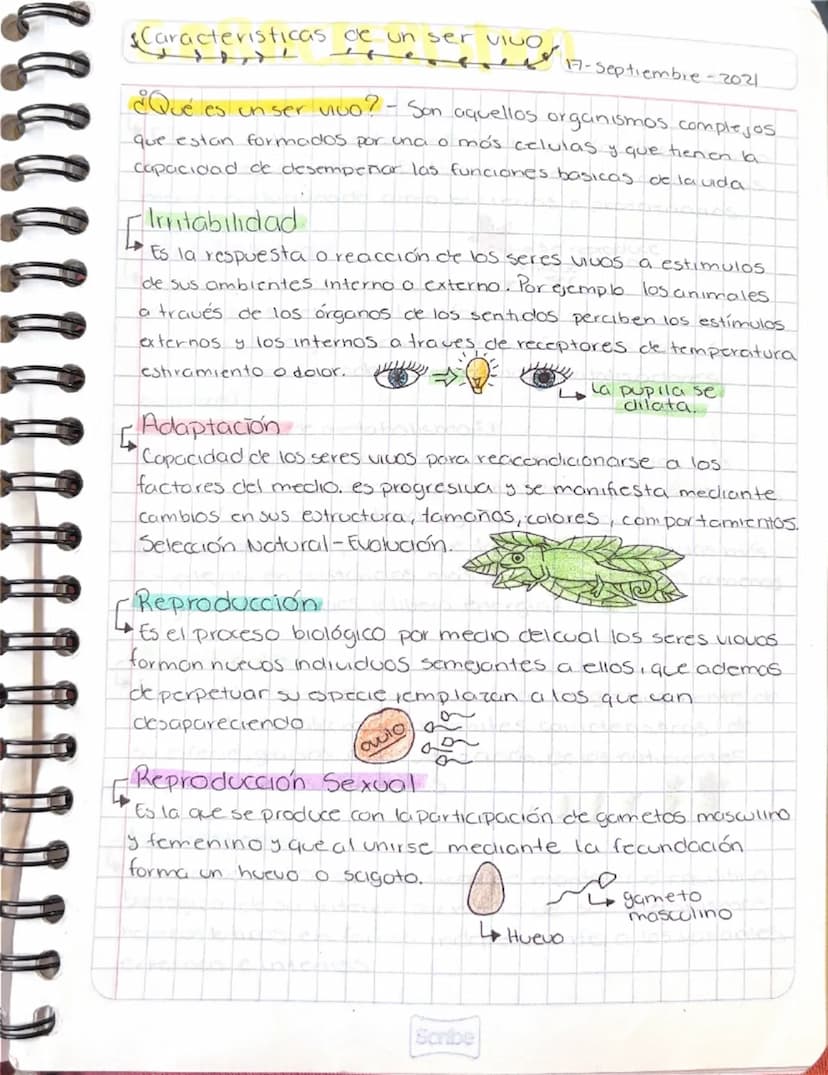 Caracteristicas de un ser vivo
17-Septiembre-2021
¿Qué es un ser vivo? - Son aquellos organismos complejos
que estan formados por una o más celulas y que tienen la
capacidad de desempeñar las funciones basicas de la vida
Irritabilidad
Es la respuesta o reacción de los seres vivos a estimulos
de sus ambientes interno o externo. Por ejemplo los animales
a través de los órganos de los sentidos perciben los estímulos
externos y los internos a traves de receptores de temperatura
estiramiento o dolor.
La pupila se
dilata.
Adaptación
Capacidad de los seres vivos para reacondicionarse a los
factores del medio. es progresiva y se manifiesta mediante
cambios en sus estructura, tamaños, colores, comportamientos.
Selección Natural-Evolución.
Reproducción
Es el proceso biológico por medio del cual los seres viovos
forman nuevos individuos semejantes a ellos, que ademas
de perpetuar su especie remplazan a los que van
desapareciendo
ovulo
Reproducción Sexual
Es la que se produce con la participación de gametos masculino
y femenino y que al unirse mediante la fecundación
forma un huevo o scigoto.
gameto
masculino
Huevo
Scribe